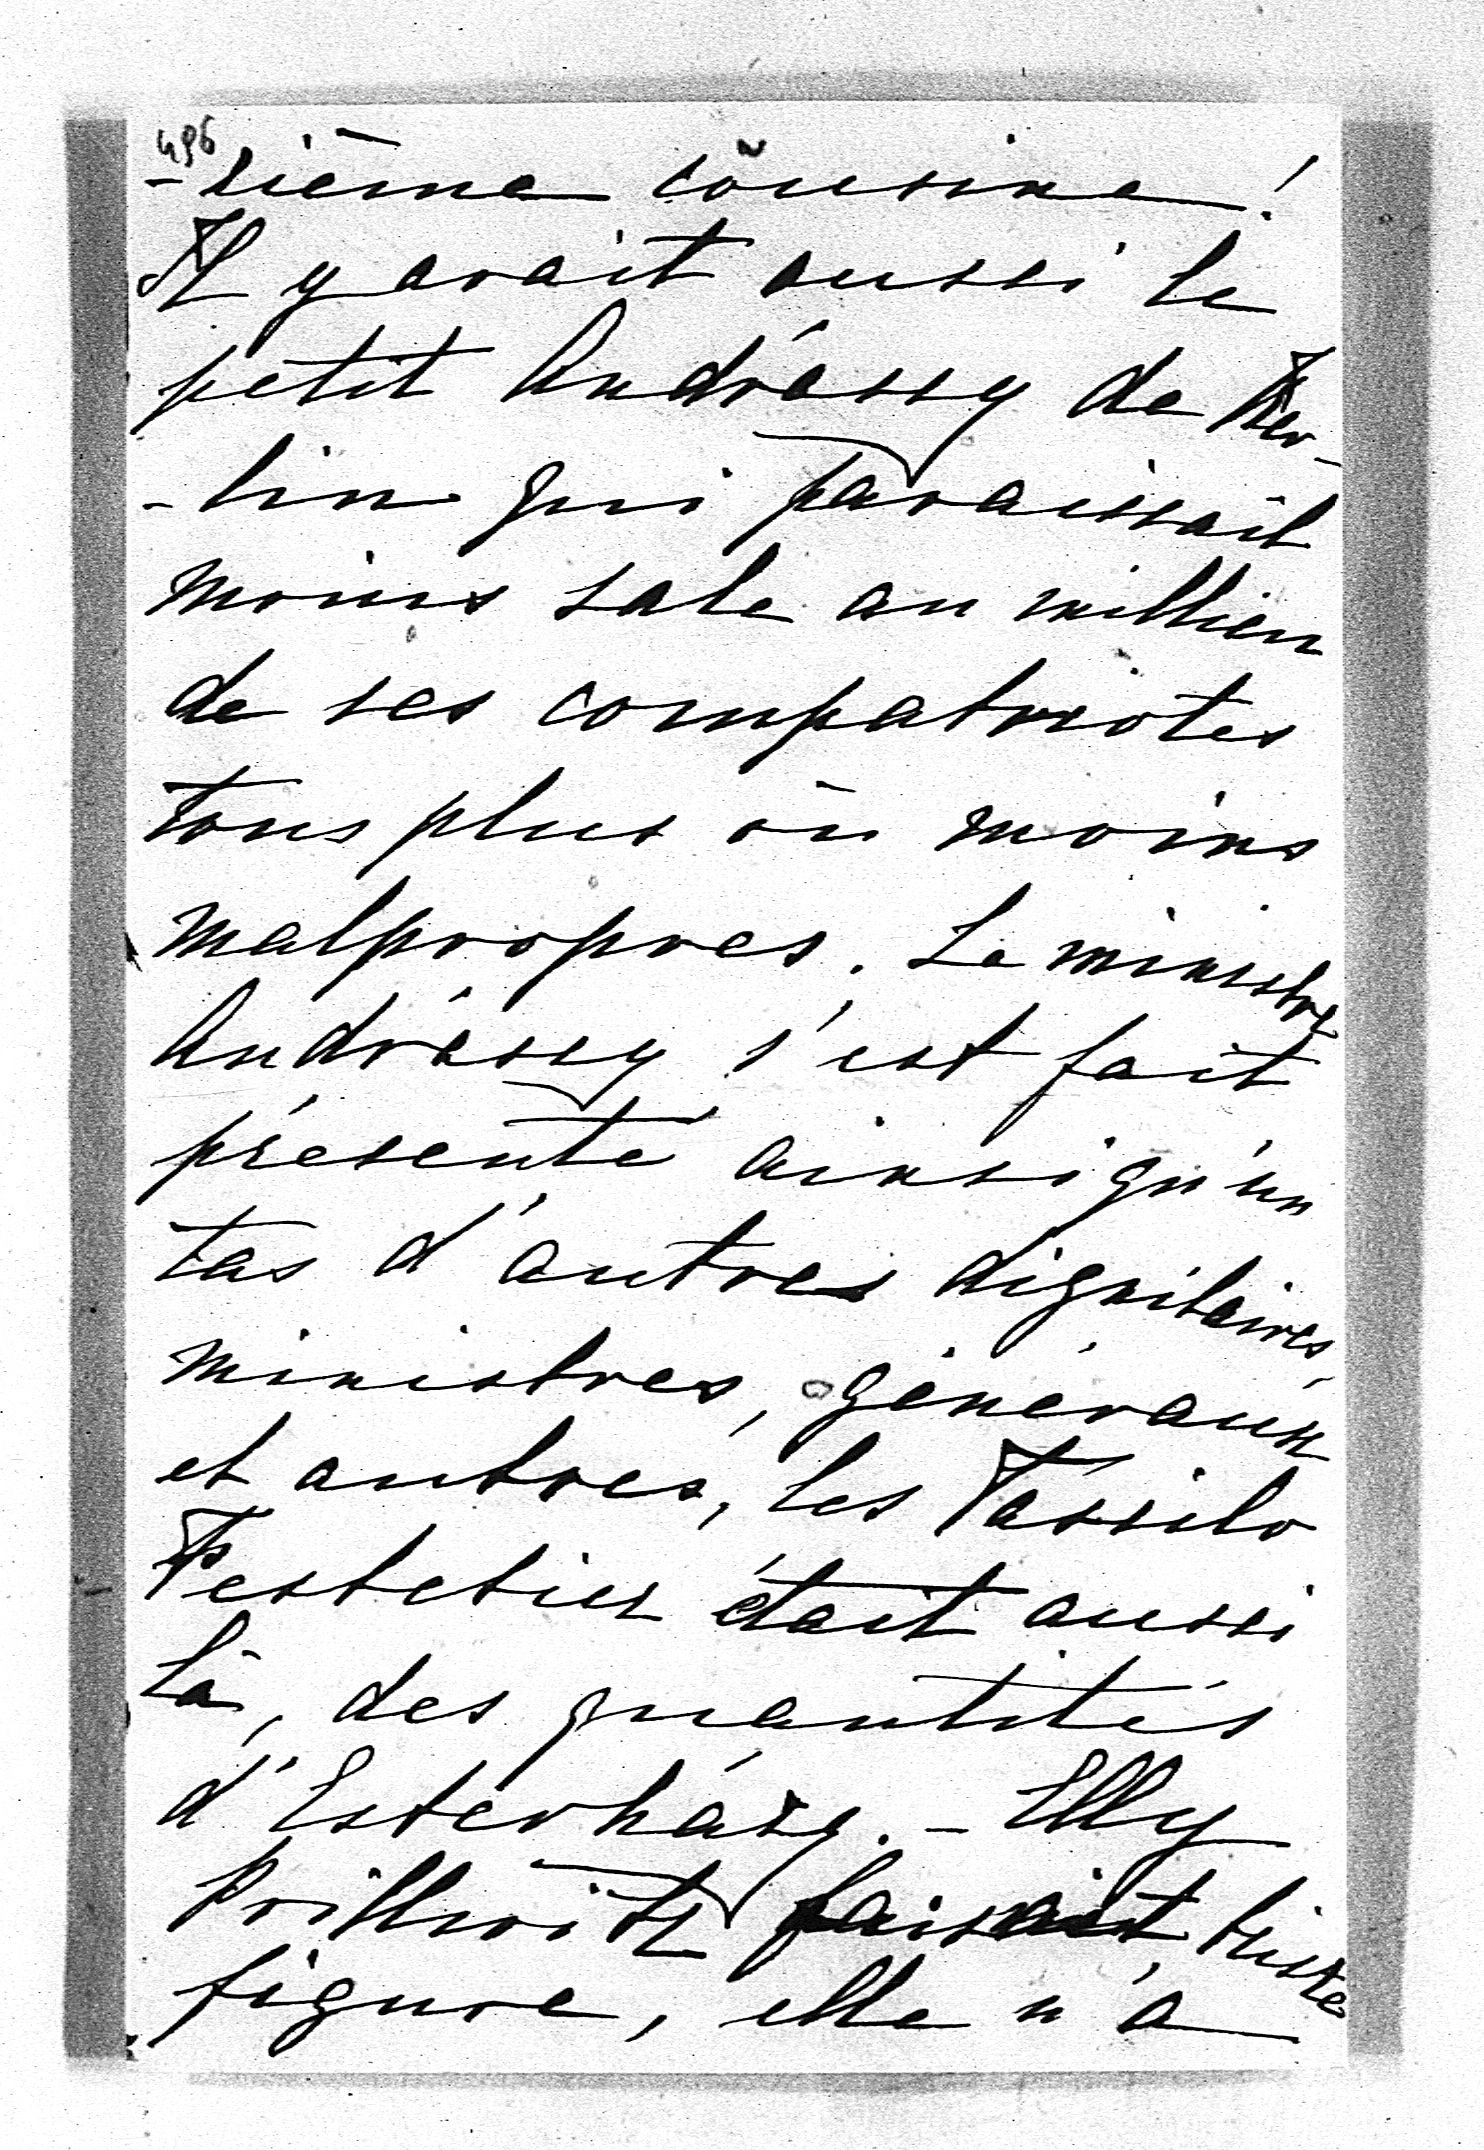 496
-sième cousine!
Il y avait aussi le
petit Andrássy de Ber-
-lin qui paraissait
moins sale au millieu
de ses compatriotes
tous plus ou moins
malpropres. Le ministre
Andrássy s'est fait
présenté ainsi qu'un
tas d'autres dignitaires,
ministres, généraux
et autres, les Tassilo
Festetics était aussi
là, des quantités
d'Esterházy. - Elly
Prillwitz faisait triste
figure, elle n'a